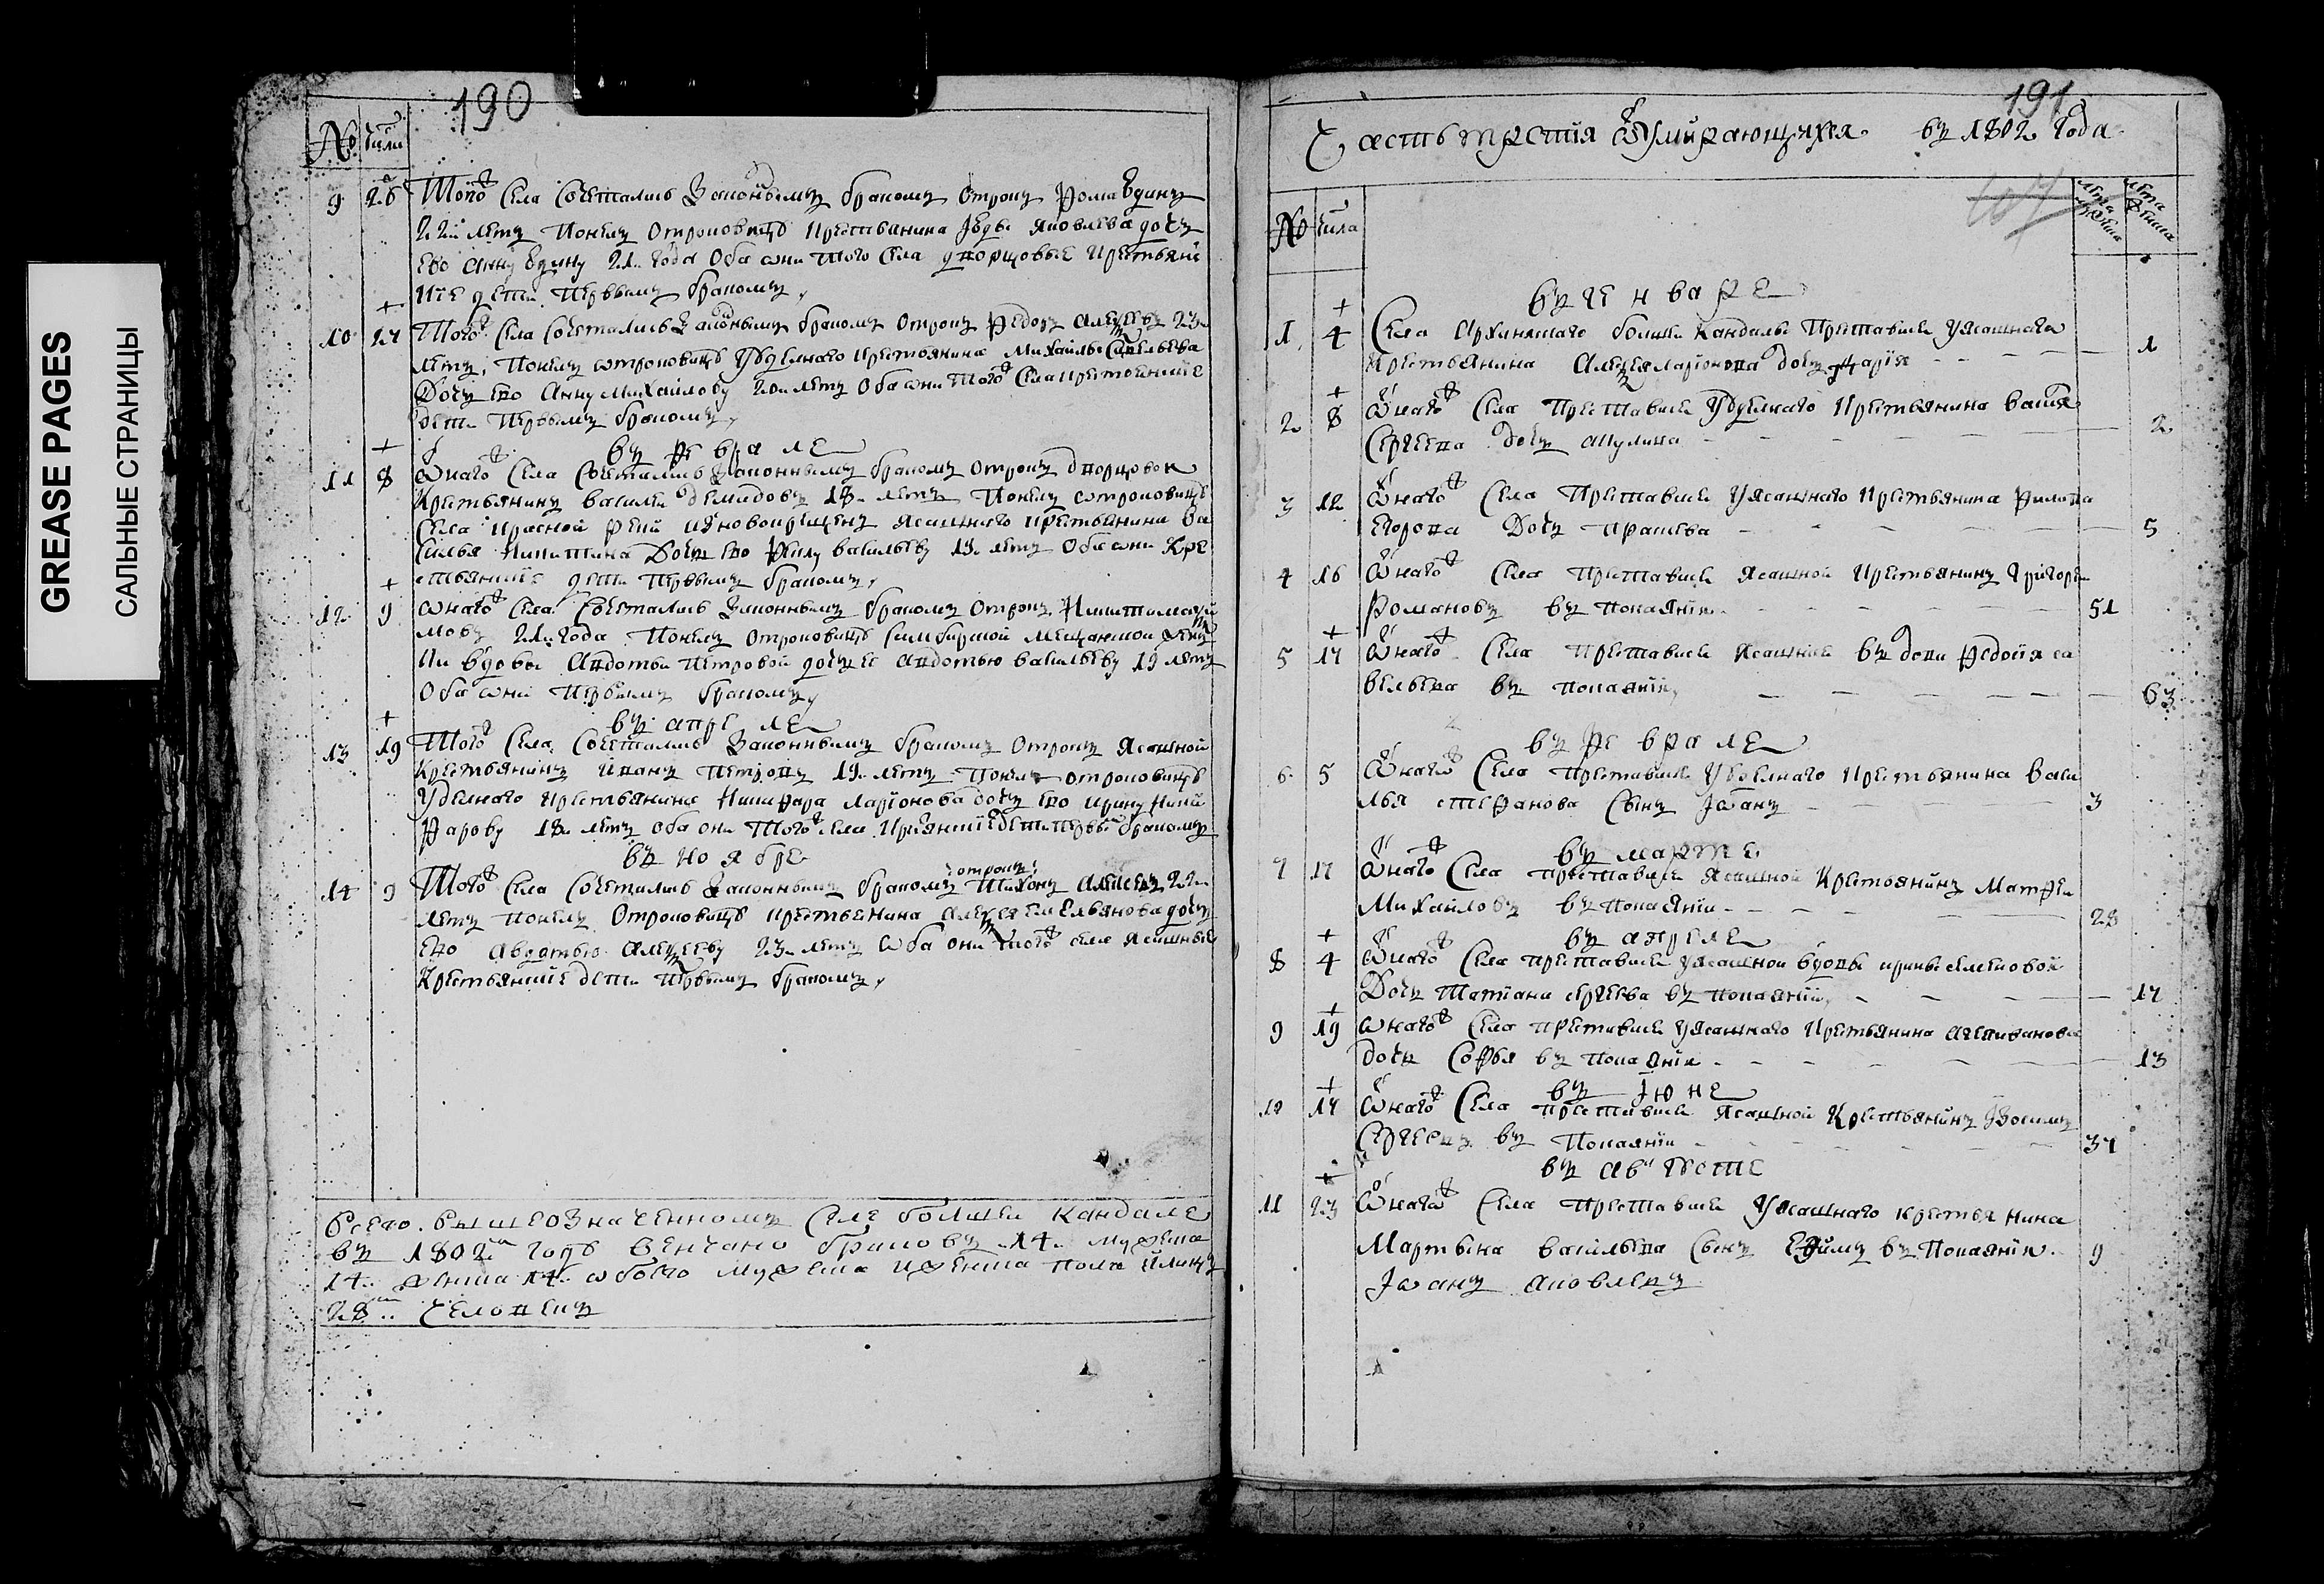 GREASE PAGES
САЛЬНЫЕ СТРАНИЦЫ
190
№ числа
9 26 Того села сочетались законнымъ бракомъ отрокъ Фома
22 летъ понелъ отроковицу крестьянина Яковлева дочь
его Анну 21 года оба они того села дворцовые крестьян
ские дети первымъ бракомъ
10 27 Того села сочетались законнымъ бракомъ отрокъ Федоръ Алексеевъ 23
летъ, понелъ отроковицу удельнаго крестьянина Михайлы Савельева
дочь его Анну Михайлову 20 летъ оба они того села крестьянские
дети первымъ бракомъ
въ феврале
11 8 Онаго села сочетались законнымъ бракомъ отрокъ дворцовой
крестьянинъ Василей Демидовъ 18 летъ понелъ отроковицу
села Красной реки новокрещенъ ясашного крестьянина Ва
силья Никитина дочь его Васильеву 19 летъ оба они кре
стьянские дети первымъ бракомъ
12 9 онаго села сочетались законнымъ бракомъ отрокъ
мовъ 21 года понелъ отроковицу симбирской мещанской
ки вдовы Авдотьи Петровой дочь ее Авдотью Васильеву 19 летъ
оба они первымъ бракомъ
въ апреле
13 19 Того села сочетались законнымъ бракомъ отрокъ ясашной
крестьянинъ Иванъ Петровъ 19 летъ понелъ отроковицу
удельнаго крестьянина Никифара Ларионова дочь его Ирину Ники
фарову 18 летъ оба они того села крестьянские дети первымъ бракомъ
въ ноябре
отрокъ
14 9 Того села сочетались законнымъ бракомъ Тихонъ Алексеевъ 22
летъ понелъ отроковицу крестьенина Алексея Емельянова дочь
его Авдотью Алексееву 23 летъ оба они того села ясашные
крестьянские дети первымъ бракомъ
Всего вышеозначенномъ селе болшей Кандале
въ 1802м годъ венчано браковъ 14 мужеска
14 женска 14 обоего мужеска и женска пола
28 человекъ
191
Часть третия о умирающихся въ 1802 года
№ числа лета мужеска лета женска
въ генваре
1 4 Села Архангелскаго болшей Кандалы преставися у ясашнаго
крестьянина Алексея Ларионова дочь Дария 1
2 8 Онаго села преставися удельнаго крестьянина Василя
Сергеева дочь Акулина 2
3 12 Онаго села преставися у ясашнаго крестьянина Филипа
Егорова дочь 5
4 16 Онаго села преставися ясашной крестьянинъ Григорей
Романовъ въ покаянии 51
5 17 Онаго села преставися ясашная вдова Федосия Са
вельева въ покаянии 63
въ феврале
6 5 Онаго села преставися удельнаго крестьянина Васи
лья Степанова сынъ Иоанъ 3
въ марте
7 17 Онаго села преставися ясашной крестьянинъ Матфей
Михайловъ въ покаянии 28
въ апреле
8 4 Онаго села преставися у ясашной вдовы Ирины
дочь Татиана Сергеева въ покаянии 17
9 19 онаго села преставися у ясашнаго крестьянина
дочь Софья въ покаянии 13
въ июне
10 17 Онаго села преставися ясашной крестьянинъ Изосимъ
Сергеевъ въ покаянии 37
въ августе
11 23 Онаго села преставися у ясашнаго крестьянина
Мартына Васильева сынъ Ефимъ въ покаянии 9
Иоанъ Яковлевъ